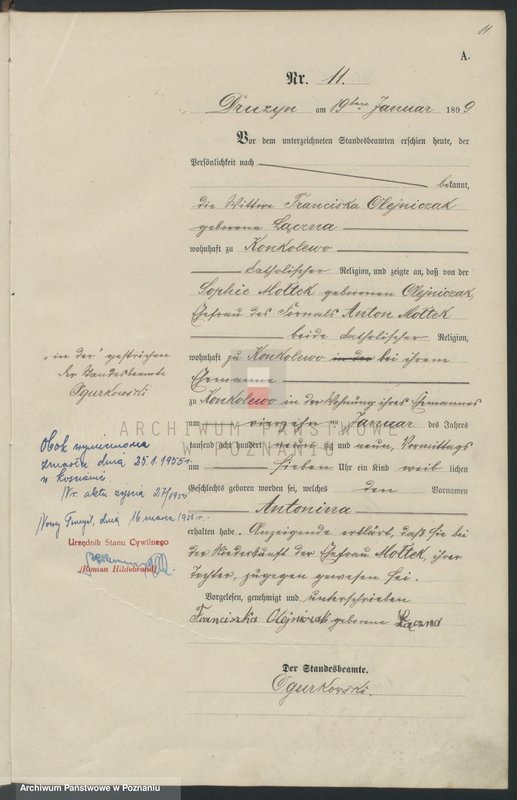 11.
A.
Nr. 11.
Druzyn am 19ten Januar 1899
Vor dem unterzeichneten Standesbeamten erschien heute, der
Persönlichkeit nach
bekannt,
die Wittwe Franciska Olejniczak
geborene Łączna
wohnhaft zu Konkolewo
katholischer Religion, und zeigte an, daß von der
Sophie Mottek geborenen Olejniczak,
Ehefrau des Fornals Anton Mottek
beide katholischer Religion,
wohnhaft zu Konkolewo in der bei ihrem
Ehemanne
zu Konkolewo in der Wohnung ihres Ehemannes
am vierzehn ten Januar des Jahres
tausend acht hundert neun zig und neun, Vormittags
um sieben Uhr ein Kind weib lichen
Geschlechts geboren worden sei, welches den Vornamen
Antonina
erhalten habe. Anzeigende erklärt, daß sie bei
der Niederkunft der Ehefrau Mottek, ihrer
Tochter, zugegen gewesen sei.
Vorgelesen, genehmigt und unterschrieben
Franciszka Olejniczak geborene Łączna
Der Standesbeamte.
Ogurkowski.
"in der" gestrichen
Der Standesbeamte
Ogurkowski
Obok wymieniona
zmarła dnia 25.1.1955 r.
w Poznaniu.
Nr. aktu zgonu 27/1955
Nowy Tomyśl, dnia 16 marca 1955 r.
Urzędnik Stanu Cywilnego
(Roman Hildebrand)
ARCHIWUM PAŃSTWOWE
W POZNANIU
Archiwum Państwowe w Poznaniu